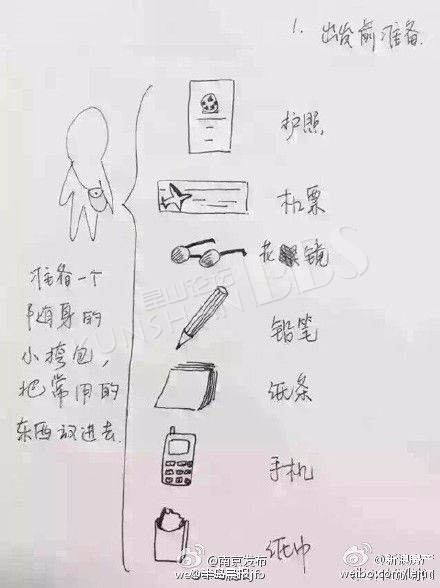 1. 出发前准备
护照
机票
花镜
铅笔
纸条
手机
纸巾
准备一个
随身的
小挎包,
把常用的
东西放进去.
昆山论坛
KUNSHAN BBS
@南京发布
we@半岛晨报jfo
@新浪房产